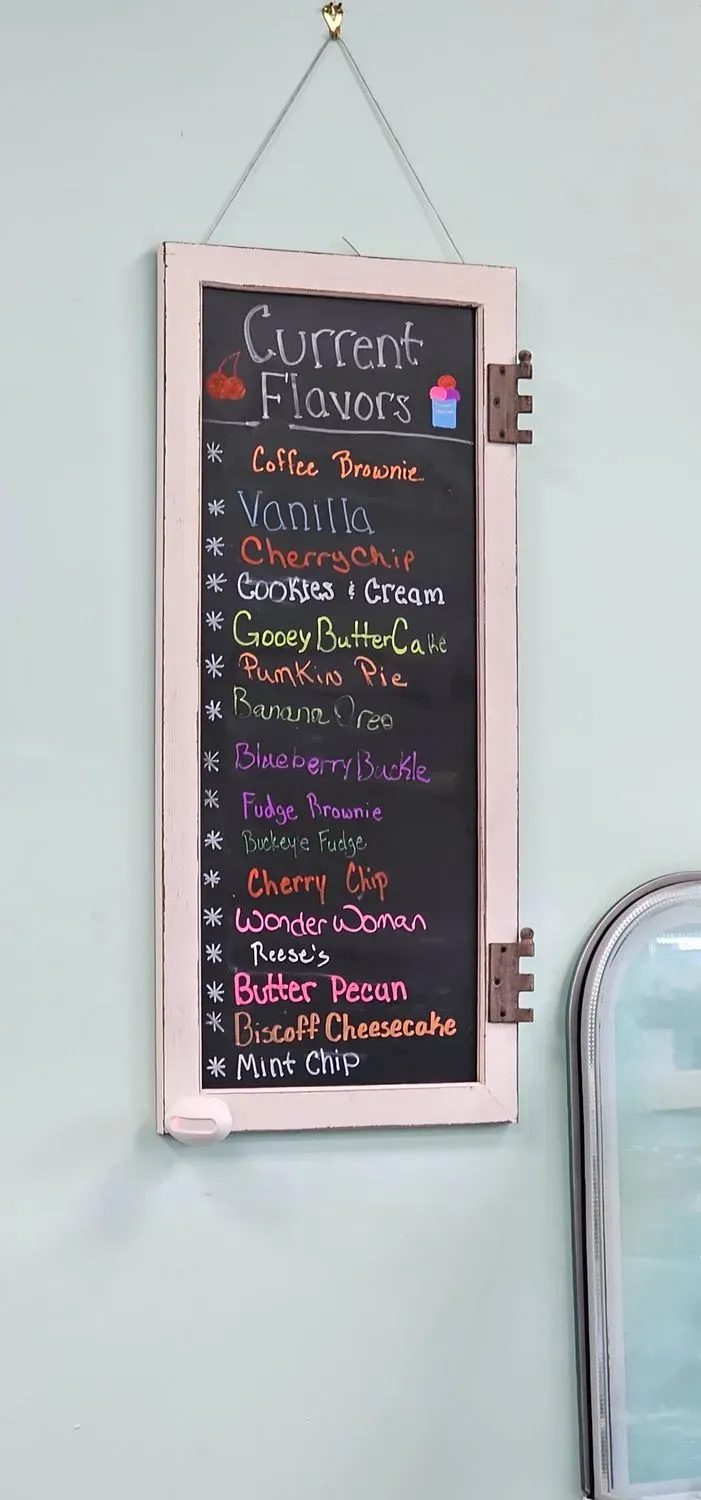 Current
Flavors
* Coffee Brownie
* Vanilla
* Cherrychip
* Cookies & Cream
* Gooey ButterCake
* Pumkin Pie
* Banana Oreo
* Blueberry Buckle
* Fudge Brownie
* Buckeye Fudge
* Cherry Chip
* Wonder Woman
* Reese's
* Butter Pecan
* Biscoff Cheesecake
* Mint Chip